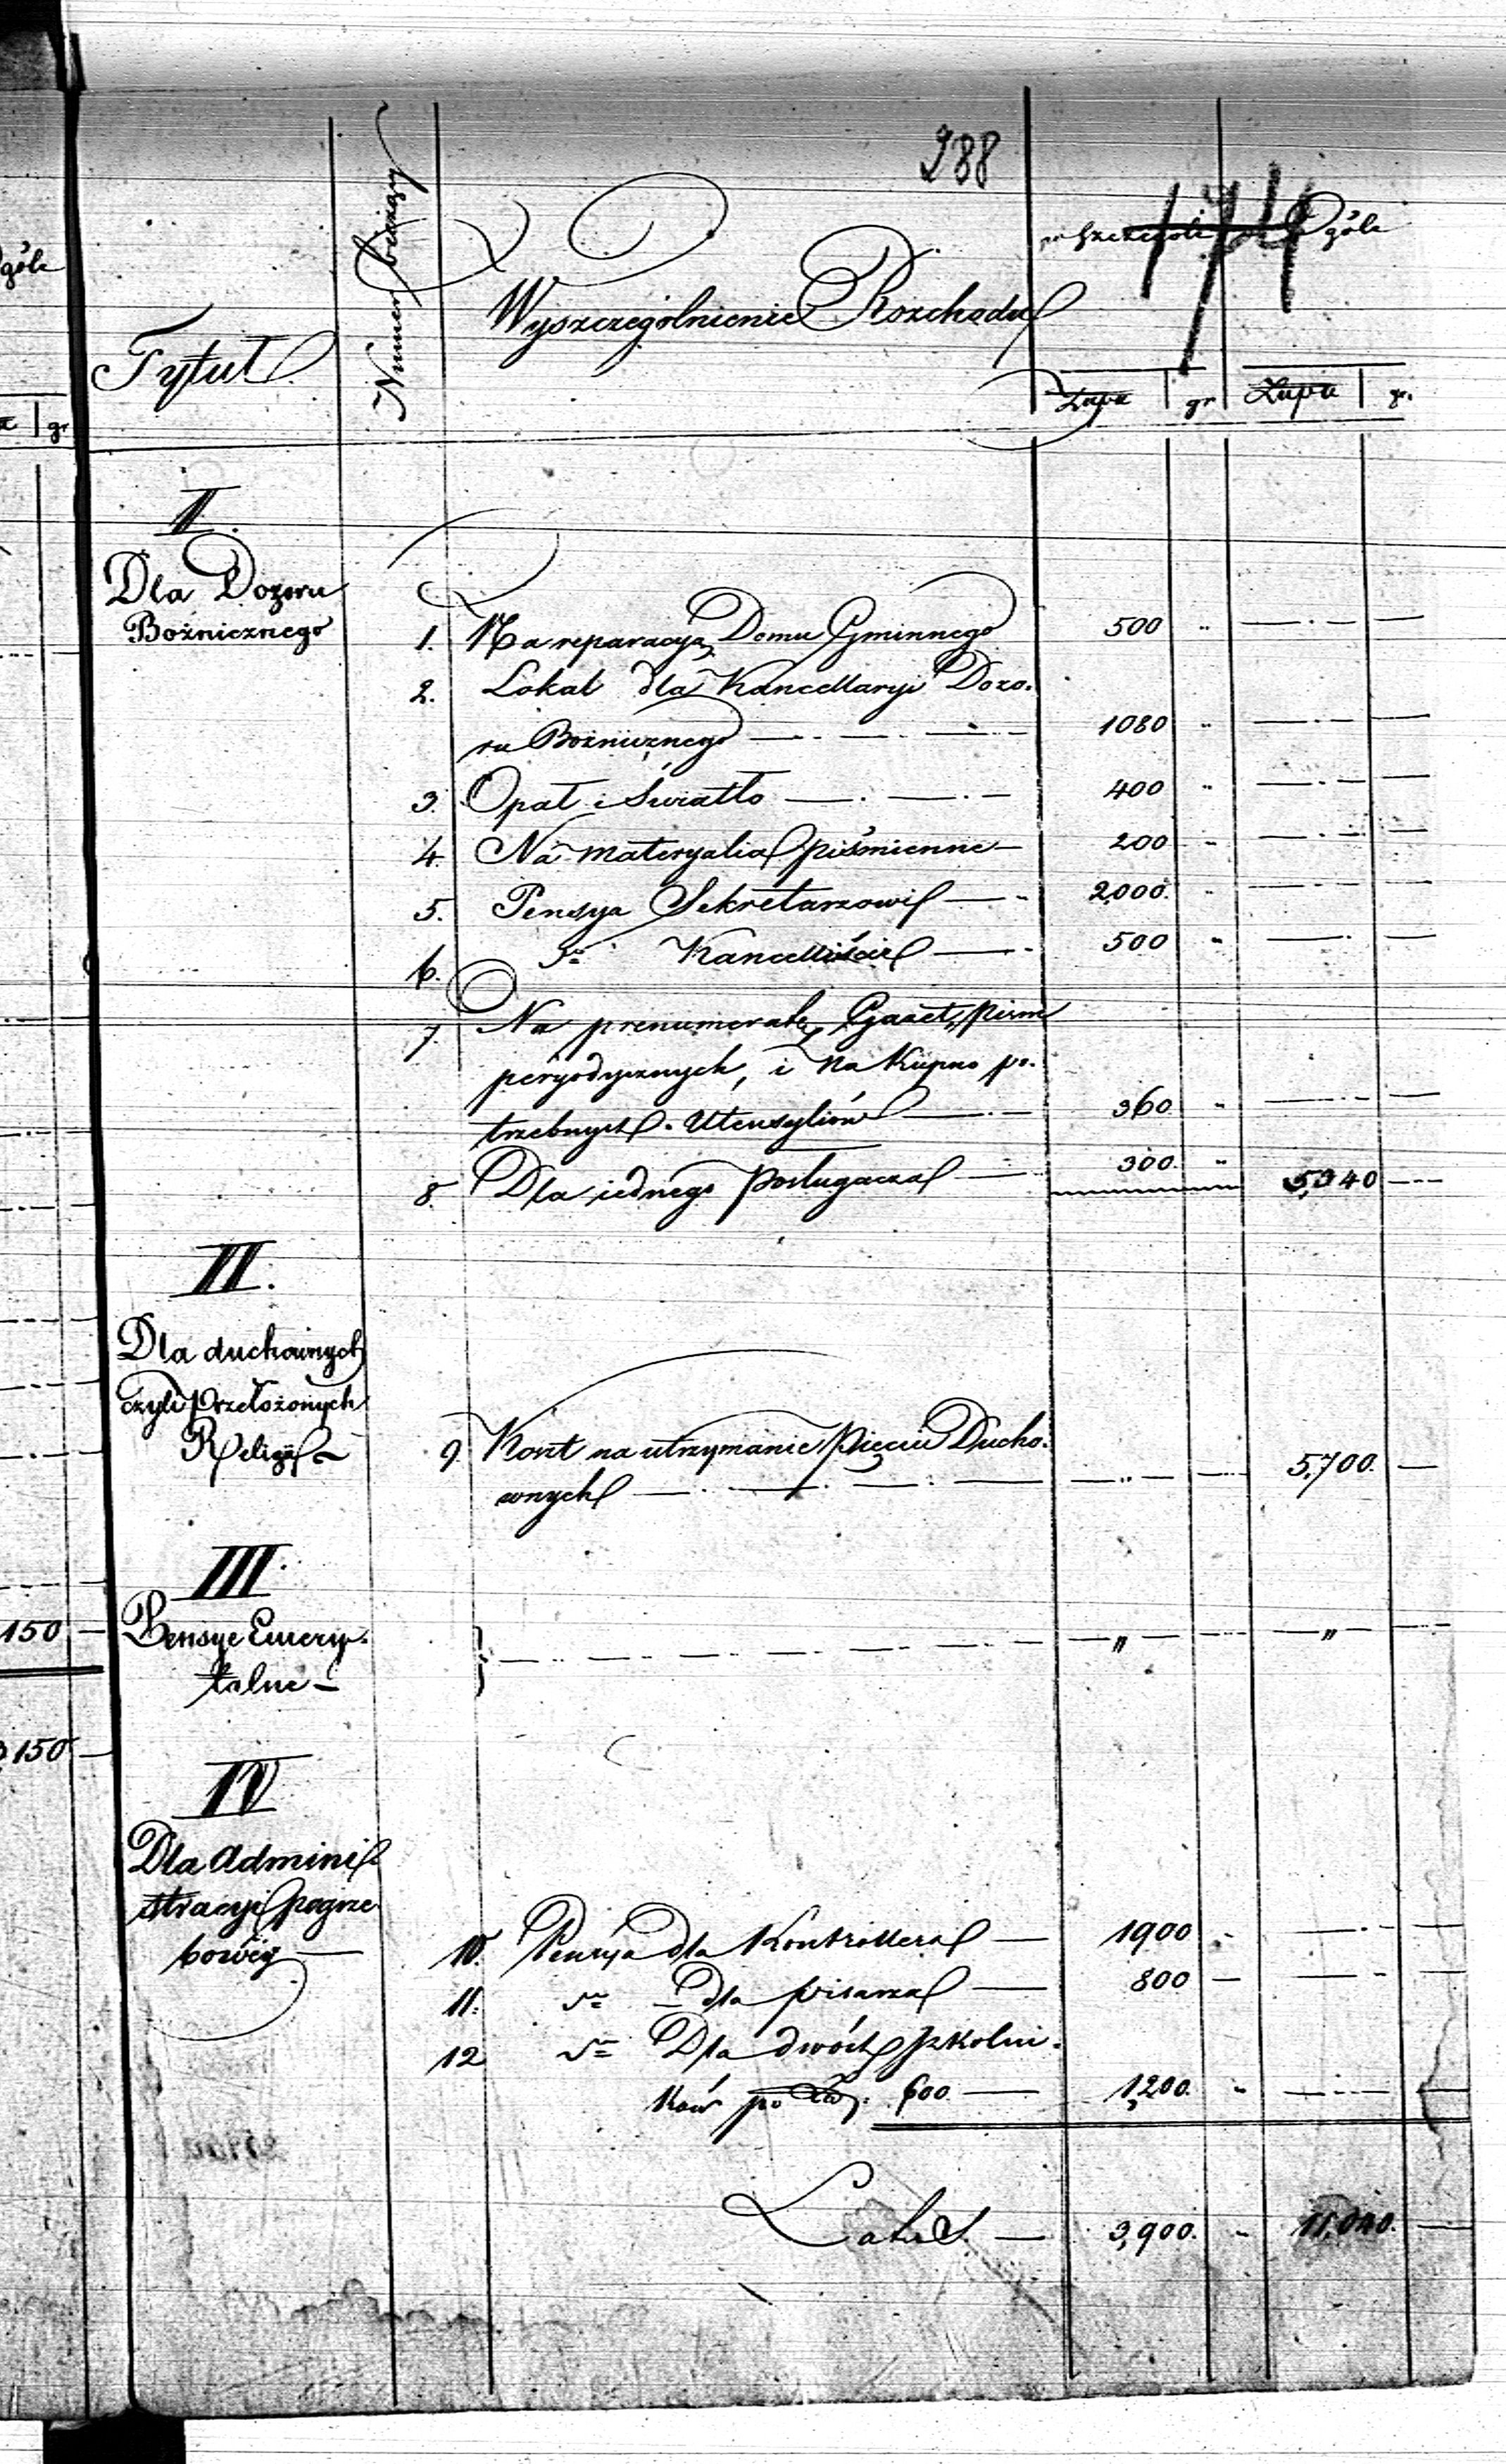 288
174
góle
Tytuł
Numer bieżący
Wyszczególnienie Rozchodu
poszczególe
Ogóle
gr
Złpu gr Złpu gr.
I.
Dla Dozoru
Bożnicznego
1. Na reparacyą Domu Gminnego 500 " — . —
2. Lokal dla Kancellaryi Dozo-
ru Bożnicznego — . — . — 1080 " — . —
3. Opał i Światło — . — . — 400 " — . —
4. Na materyalia piśmienne — 200 " — . —
5. Pensya Sekretarzowi — " 2,000. " — . —
6. dto Kancelliście — " 500 " — . —
7. Na prenumeratę Gazet, pism
peryodycznych, i na Kupno po-
trzebnych Utensyliów — . — 360 " — . —
8. Dla iednego posługacza — 300. " 5,340 — . —
II.
Dla duchownych
czyli Przełożonych
Religii —
9. Koszt na utrzymanie pięciu Ducho-
wnych — . — . — " — 5,700. —
III.
150 —
Pensye Emery-
talne —
— . — . — " — " —
150 —
IV
Dla Admini-
stracyi pogrze
bowéy —
10. Pensya dla Kontrollera — 1900 " — . —
11. dto — dla pisarza — 800 — — . —
12 dto Dla dwóch szkolni-
ków po złp. 600 — 1,200. " — . —
Latus — 3,900. " 11,040. —